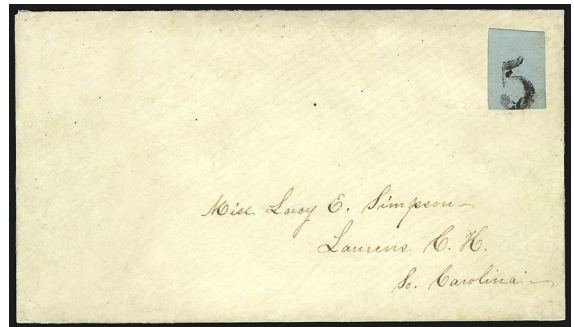 5
Miss Lucy E. Simpson
Laurens C. H.
So. Carolina